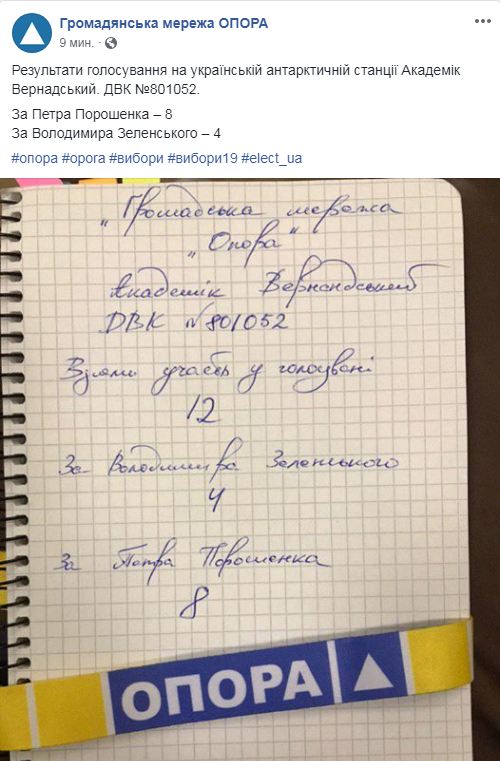 Громадянська мережа ОПОРА
9 мин.
Результати голосування на українській антарктичній станції Академік
Вернадський. ДВК №801052.
За Петра Порошенка – 8
За Володимира Зеленського – 4
#опора #opora #вибори #вибори19 #elect_ua
"Громадська мережа
"Опора"
Академік Вернандський
ДВК №801052
Взяли участь у голосувані
12
За Володимира Зеленського
4
За Петра Порошенка
8
ОПОРА